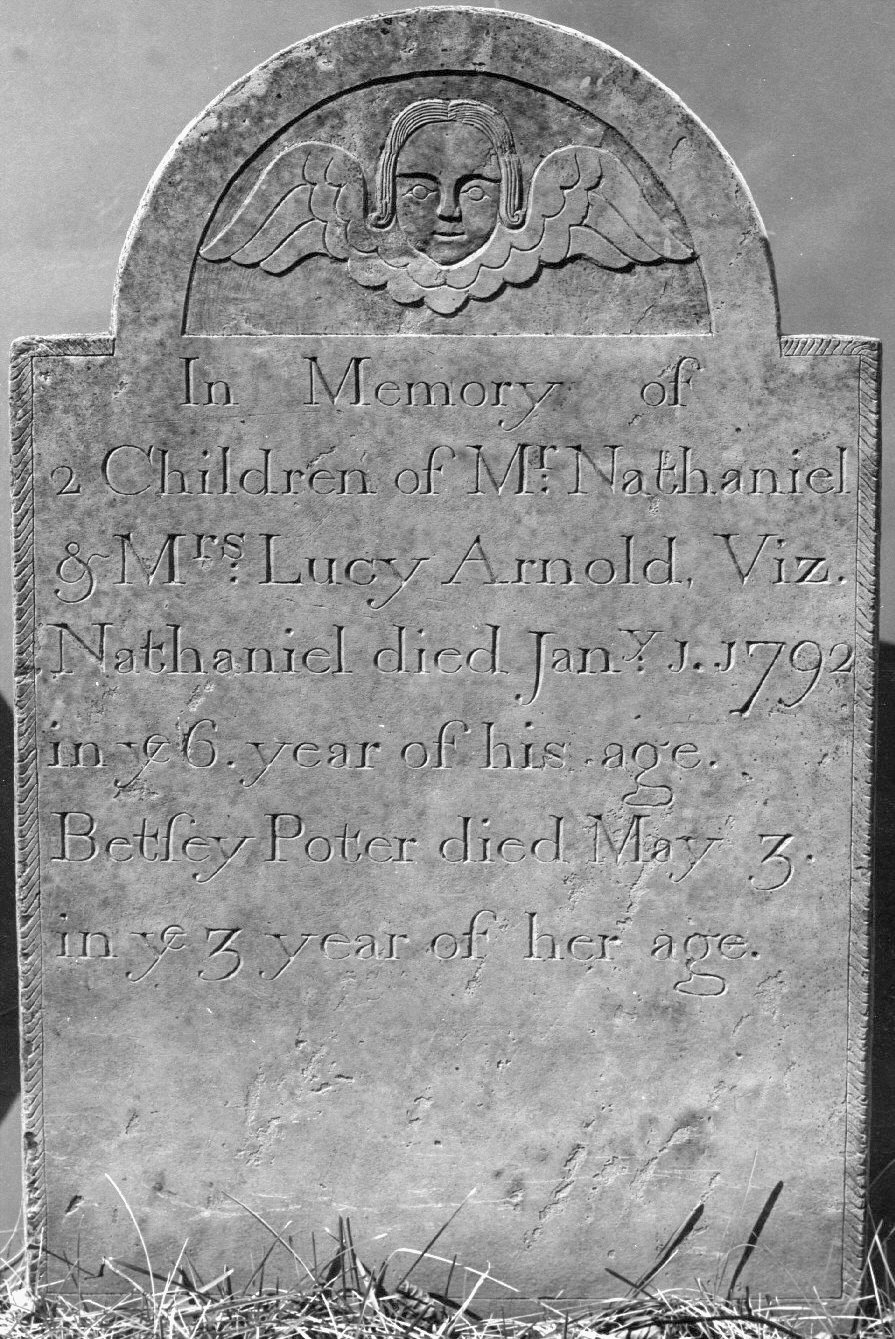 In Memory of
2 Children of Mr. Nathaniel
& Mrs. Lucy Arnold, Viz.
Nathaniel died Jany. 1. 1792
in ye 6. year of his age.
Betſey Poter died May 3.
in ye 3 year of her age.